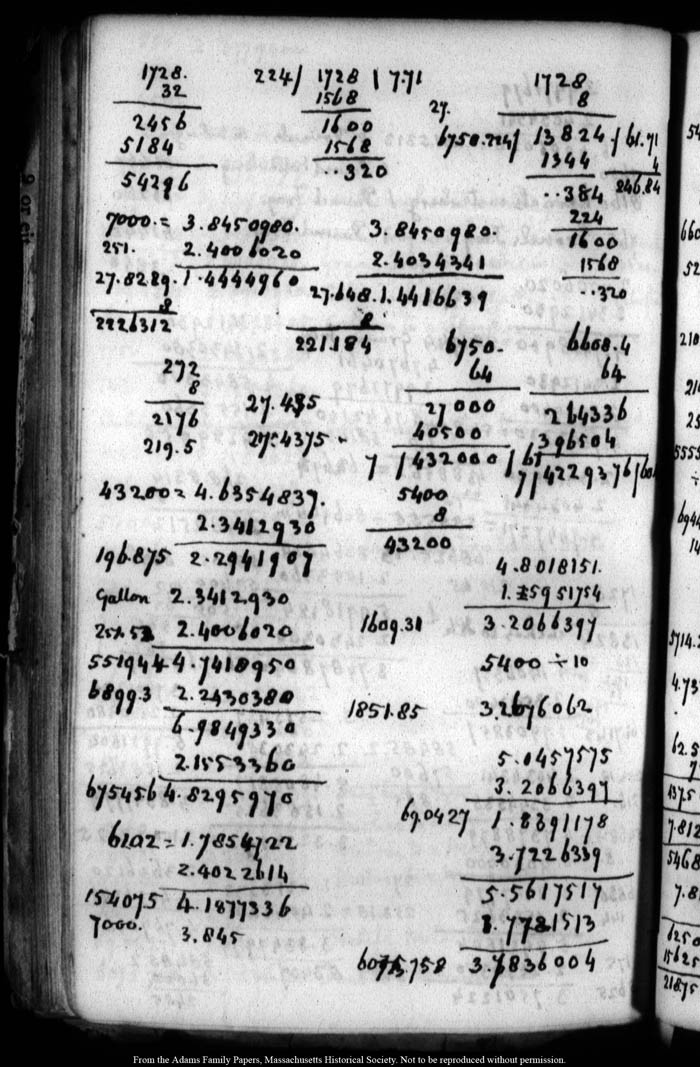 1728.
32
2456
5184
54296
224/ 1728 | 7.71
1568
1600
1568
..320
1728
8
27.
6750.224/ 13824 / 61.71
4
246.84
1344
..384
224
1600
1568
..320
7000. = 3.8450980.
251. 2.4006020
27.8289. 1.4444960
8
2226312
3.8450980.
2.4034341
27.648. 1.4416639
8
221.184
272
8
2176
219.5
27.485
27.4375
6750.
64
27000
40500
7 / 432000 / 61
5400
8
43200
6608.4
64
264336
396504
7/ 4229376 / 60
43200 = 4.6354837.
2.3412930
196.875 2.2941907
Gallon 2.3412930
251.52 2.4006020
551944 4.7418950
6899.3 2.2430380
6.9849330
2.1553360
675456 4.8295970
6102 = 1.7854722
2.4022614
154075 4.1877336
7000. 3.845
4.8018151.
1.5951754
1609.31 3.2066397
5400 ÷ 10
1851.85 3.2676062
5.0457575
3.2066397
69.0427 1.8391178
3.7226339
5.5617517
1.7781513
6075.758 3.7836004
From the Adams Family Papers, Massachusetts Historical Society. Not to be reproduced without permission.